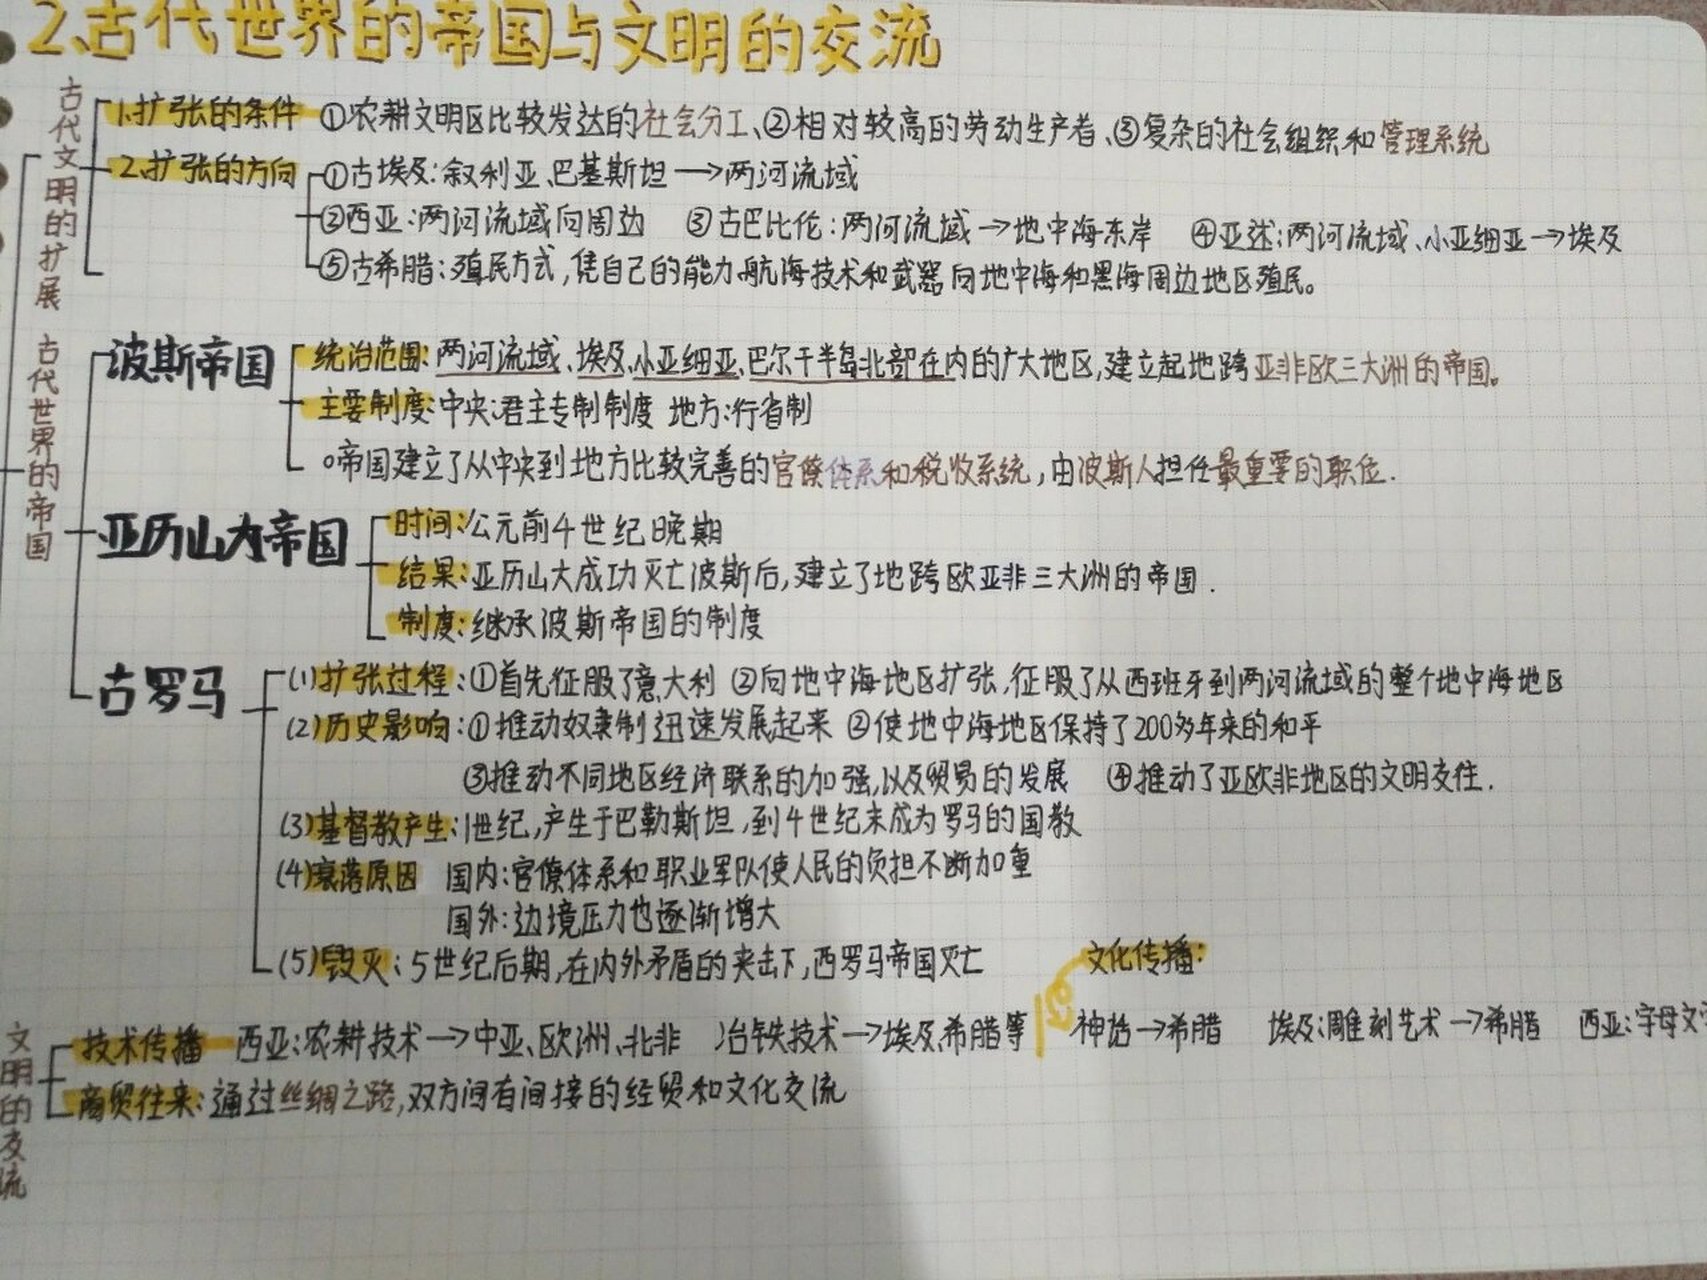 2.古代世界的帝国与文明的交流
古代文明的扩展
1.扩张的条件 ①农耕文明区比较发达的社会分工、②相对较高的劳动生产者、③复杂的社会组织和管理系统
2.扩张的方向 ①古埃及:叙利亚、巴基斯坦→两河流域
②西亚:两河流域向周边 ③古巴比伦:两河流域→地中海东岸 ④亚述:两河流域、小亚细亚→埃及
⑤古希腊:殖民方式,凭自己的能力航海技术和武器向地中海和黑海周边地区殖民。
古代世界的帝国
波斯帝国 统治范围:两河流域、埃及、小亚细亚、巴尔干半岛北部在内的广大地区,建立起地跨亚非欧三大洲的帝国。
主要制度:中央:君主专制制度 地方:行省制
。帝国建立了从中央到地方比较完善的官僚体系和税收系统,由波斯人担任最重要的职位.
亚历山大帝国 时间:公元前4世纪晚期
结果:亚历山大成功灭亡波斯后,建立了地跨欧亚非三大洲的帝国.
制度:继承波斯帝国的制度
古罗马 (1)扩张过程:①首先征服了意大利 ②向地中海地区扩张,征服了从西班牙到两河流域的整个地中海地区
(2)历史影响:①推动奴隶制迅速发展起来 ②使地中海地区保持了200多年来的和平
③推动不同地区经济联系的加强,以及贸易的发展 ④推动了亚欧非地区的文明交往.
(3)基督教产生:1世纪,产生于巴勒斯坦,到4世纪末成为罗马的国教
(4)衰落原因 国内:官僚体系和职业军队使人民的负担不断加重
国外:边境压力也逐渐增大
(5)毁灭:5世纪后期,在内外矛盾的夹击下,西罗马帝国灭亡
文化传播:
文明的交流
技术传播 西亚:农耕技术→中亚、欧洲、北非 冶铁技术→埃及、希腊等 神话→希腊 埃及:雕刻艺术→希腊 西亚:字母文
商贸往来:通过丝绸之路,双方间有间接的经贸和文化交流